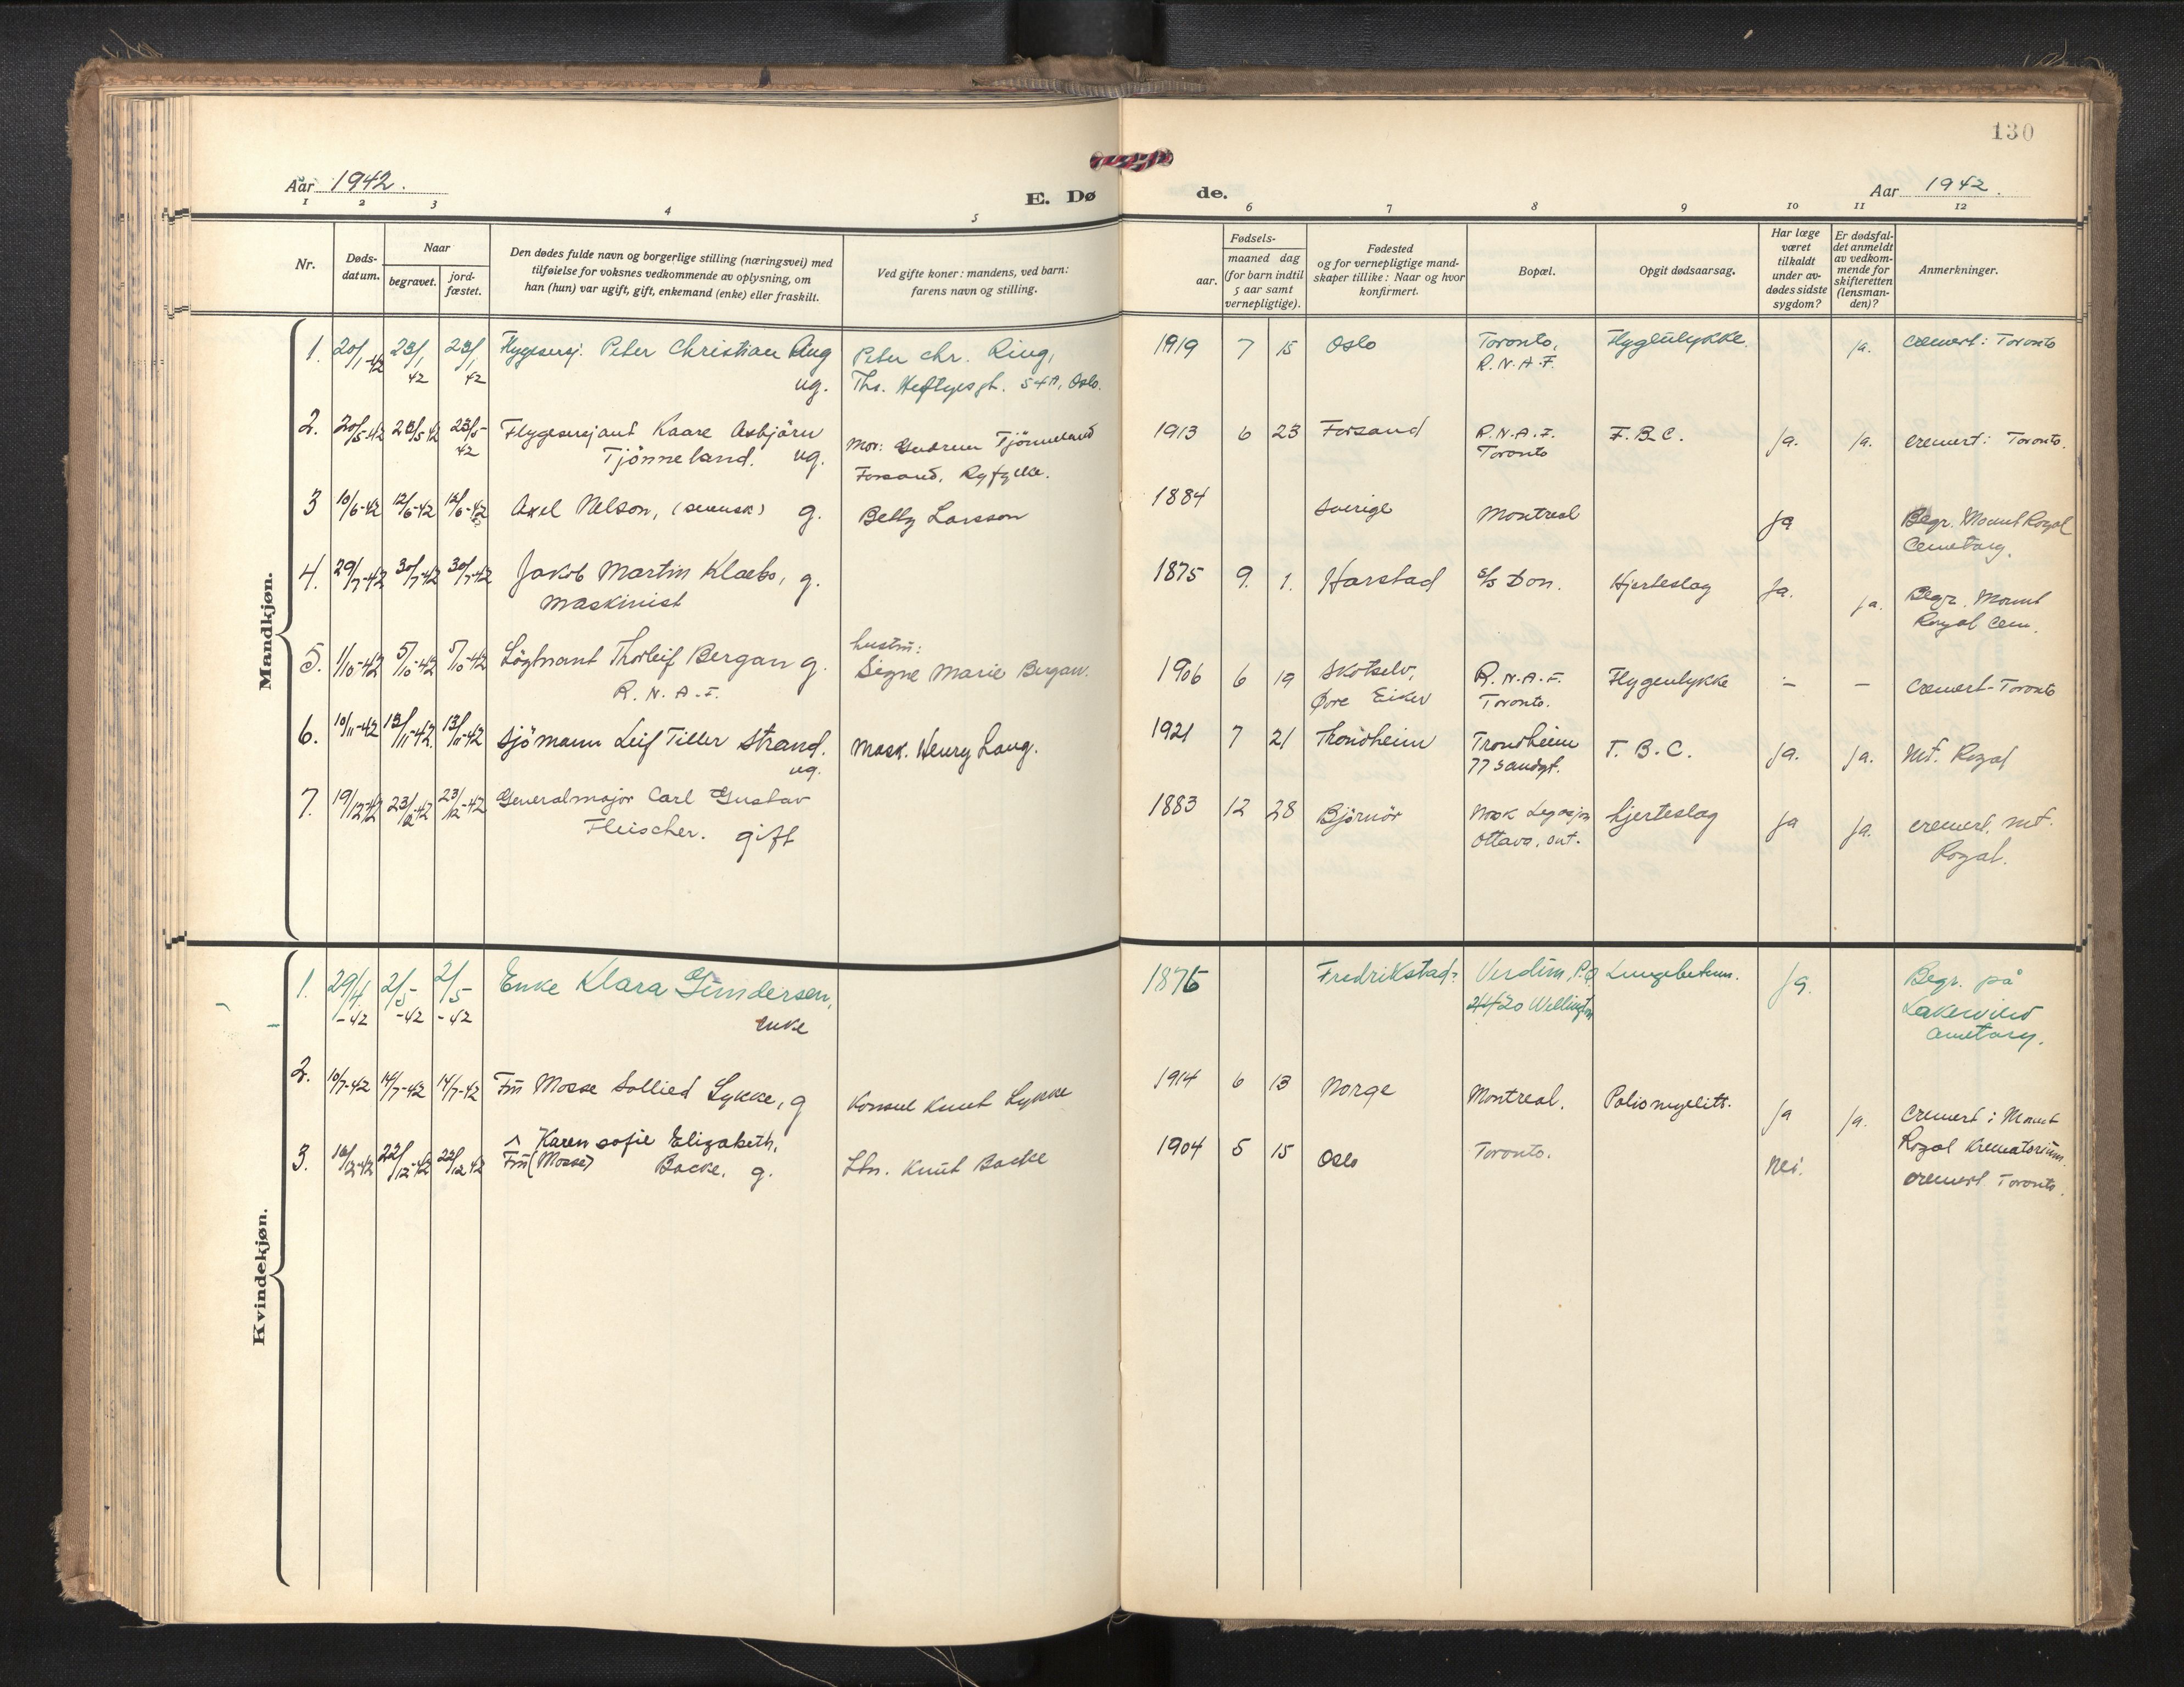 130
Aar 1942.
E. Dø
de.
Aar 1942.
1 2 3 4 5 6 7 8 9 10 11 12
Nr.
Døds-
datum.
Naar
begravet.
jord-
fæstet.
Den dødes fulde navn og borgerlige stilling (næringsvei) med
tilføielse for voksnes vedkommende av oplysning, om
han (hun) var ugift, gift, enkemand (enke) eller fraskilt.
Ved gifte koner: mandens, ved barn:
farens navn og stilling.
Fødsels-
aar.
maaned dag
(for barn indtil
5 aar samt
vernepligtige).
Fødested
og for vernepligtige mand-
skaper tillike: Naar og hvor
konfirmert.
Bopæl.
Opgit dødsaarsag.
Har læge
været
tilkaldt
under av-
dødes sidste
sygdom?
Er dødsfal-
det anmeldt
av vedkom-
mende for
skifteretten
(lensman-
den)?
Anmerkninger.
Mandkjøn.
1. 20/1-42 23/1 42 23/1 42 Flygesersj. Peter Christian Ring ug. Peter Chr. Ring, Ths. Heftyesgt. 54A, Oslo. 1919 7 15 Oslo Toronto, R.N.A.F. Flygeulykke. ja. cremert: Toronto
2. 20/5-42 23/5 42 23/5-42 Flygesersjant Kaare Asbjörn Tjönneland. ug. Mor: Gudrun Tjönneland Forsand, Ryfylke. 1913 6 23 Forsand R.N.A.F. Toronto F.B.C. ja. ja. cremert: Toronto.
3 10/6-42 12/6-42 12/6-42 Axel Nelson, (svensk) g. Betty Larsson 1884 Sverige Montreal ja Begr. Mount Royal Cemetary.
4. 29/7-42 30/7-42 30/7-42 Jakob Martin Klaebo, g. maskinist 1875 9. 1. Harstad S/S Don. Hjerteslag ja. ja. Begr. Mount Royal Cem.
5. 1/10-42 5/10-42 5/10-42 Löytnant Thorleif Bergan g. R.N.A.F. hustru: Signe Marie Bergan. 1906 6 19 Skotselv, Øvre Eiker R.N.A.F. Toronto. Flygeulykke - - Cremert-Toronto
6. 10/11-42 13/11-42 13/11-42 Sjömann Leif Tiller Strand. ug. Mask. Henry Laug. 1921 7 21 Trondheim Trondheim 77 Sandgt. T.B.C. ja. ja. Mt. Royal
7. 19/12-42 23/12-42 23/12-42 Generalmajor Carl Gustav Fleischer. gift 1883 12 28 Björnör Norsk Legasjon Ottava, Ont. hjerteslag ja ja. cremert. Mt. Royal.
Kvindekjøn.
1. 29/4-42 2/5-42 2/5-42 Enke Klara Gundersen, enke 1876 Fredrikstad? Verdun, P.Q. 20 Wellington Lungebeten. ja. Begr. på Lakeview Cemetary.
2. 10/7-42 14/7-42 14/7-42 Fru Mosse Sollied Lykke, g Konsul Knut Lykke 1914 6 13 Norge Montreal. Poliomyelitt. ja ja. Cremert i Mount Royal Krematorium.
3. 16/12-42 22/12-42 22/12 42 Fru (Mosse) Karen Sofie Elizabeth, Backe. g. Ltn. Knut Backe 1904 5 15 Oslo Toronto. Nei. cremert Toronto.